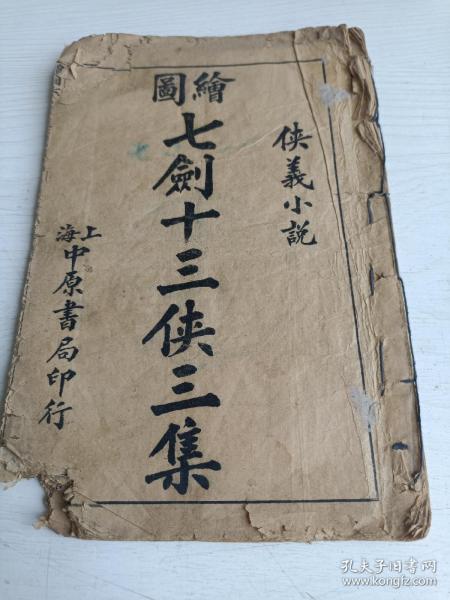 俠義小說
繪圖
七劍十三俠三集
上海
中原書局印行
孔夫子旧书网
www.kongfz.com